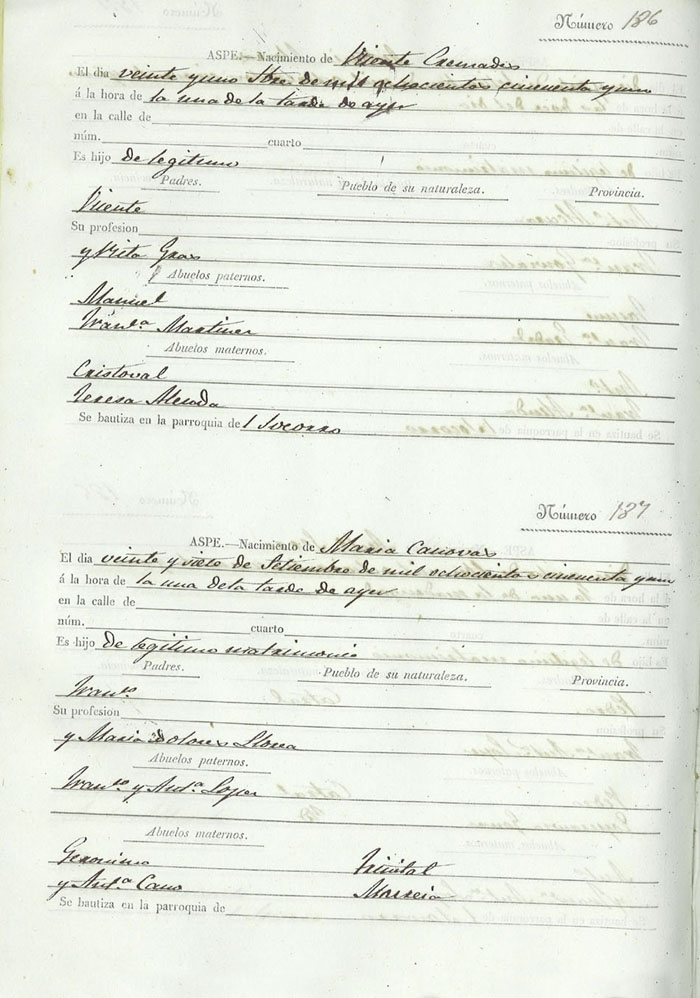 Número 186
ASPE.—Nacimiento de Vicente Cremades
El dia veinte y uno Sbre. de mil ochocientos cincuenta y uno
á la hora de la una de la tarde de ayer
en la calle de
núm. cuarto
Es hijo de legitimo
Padres. Pueblo de su naturaleza. Provincia.
Vicente
Su profesion
y Rita Gras
Abuelos paternos.
Manuel
Franca. Martinez
Abuelos maternos.
Cristoval
Teresa
Se bautiza en la parroquia del Socorro
Número 187
ASPE.—Nacimiento de Maria Canovas
El dia veinte y siete de Setiembre de mil ochocientos cincuenta y uno
á la hora de la una dela tarde de ayer
en la calle de
núm. cuarto
Es hijo de legitimo matrimonio
Padres. Pueblo de su naturaleza. Provincia.
Franco.
Su profesion
y Maria Dolores Llorca
Abuelos paternos.
Franco. y Anta. Lopez
Abuelos maternos.
Geronimo
y Anta. Cano Murcia
Se bautiza en la parroquia de